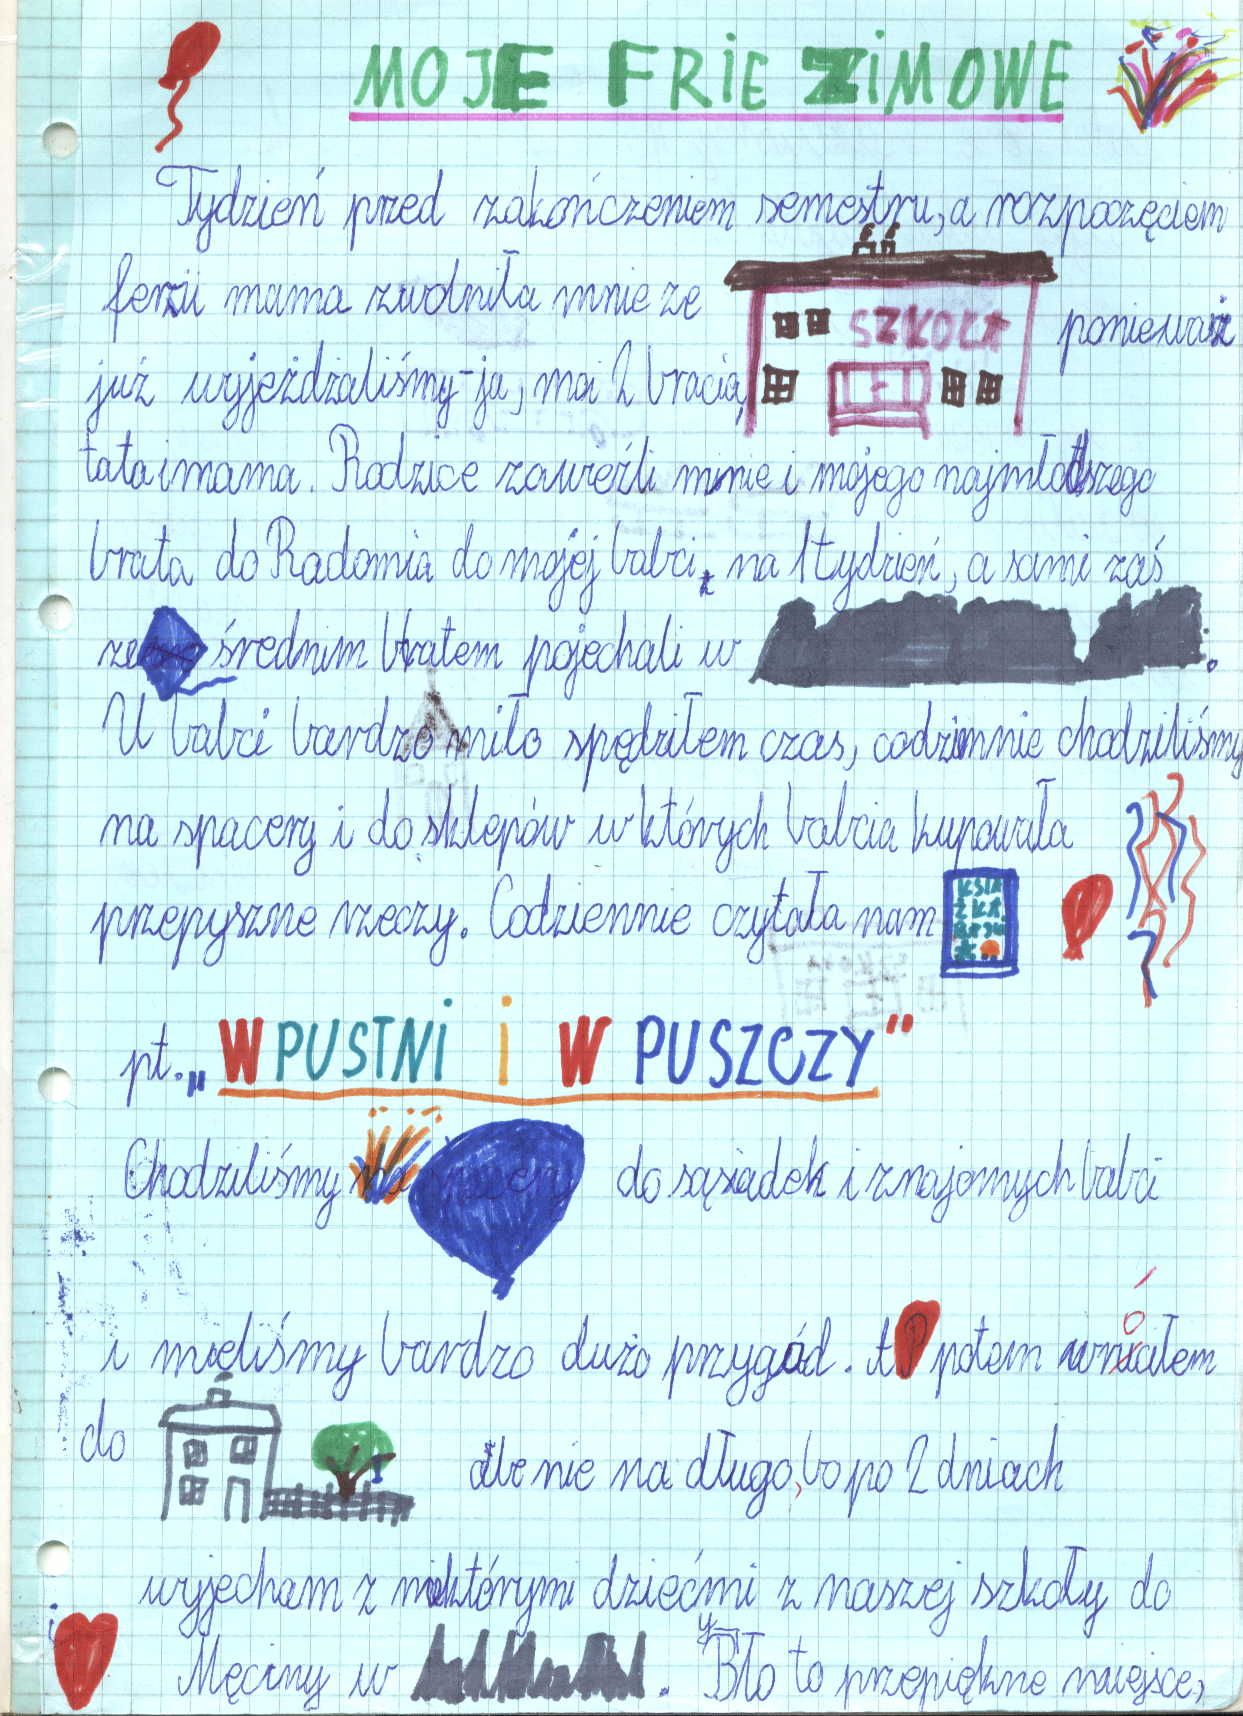 MOJE FRIE ZIMOWE
Tydzień pred zakończeniem semestru, a rozpoczęciem
ferii mama zwolniła mnie ze SZKOŁA ponieważ
już wyjeżdżaliśmy-ja, moi 2 bracia,
tata i mama. Rodzice zawieźli mnie i mojego najmłodszego
brata do Radomia do mojej babci, na 1 tydzień, a sami zaś
ze średnim bratem pojechali w .
U babci bardzo miło spędziłem czas, codziennie chodziliśmy
na spacery i do sklepów w których babcia kupowała
przepyszne rzeczy. Codziennie czytała nam
pt. „W PUSTNI i W PUSZCZY"
Chodziliśmy do sąsiadek i znajomych babci
i mieliśmy bardzo dużo przygód. A P potem wróciałem
do ale nie na długo, bo po 2 dniach
wyjecham z niektórymi dziećmi z naszej szkoły do
Męciny w . Było to przepiękne miejsce,